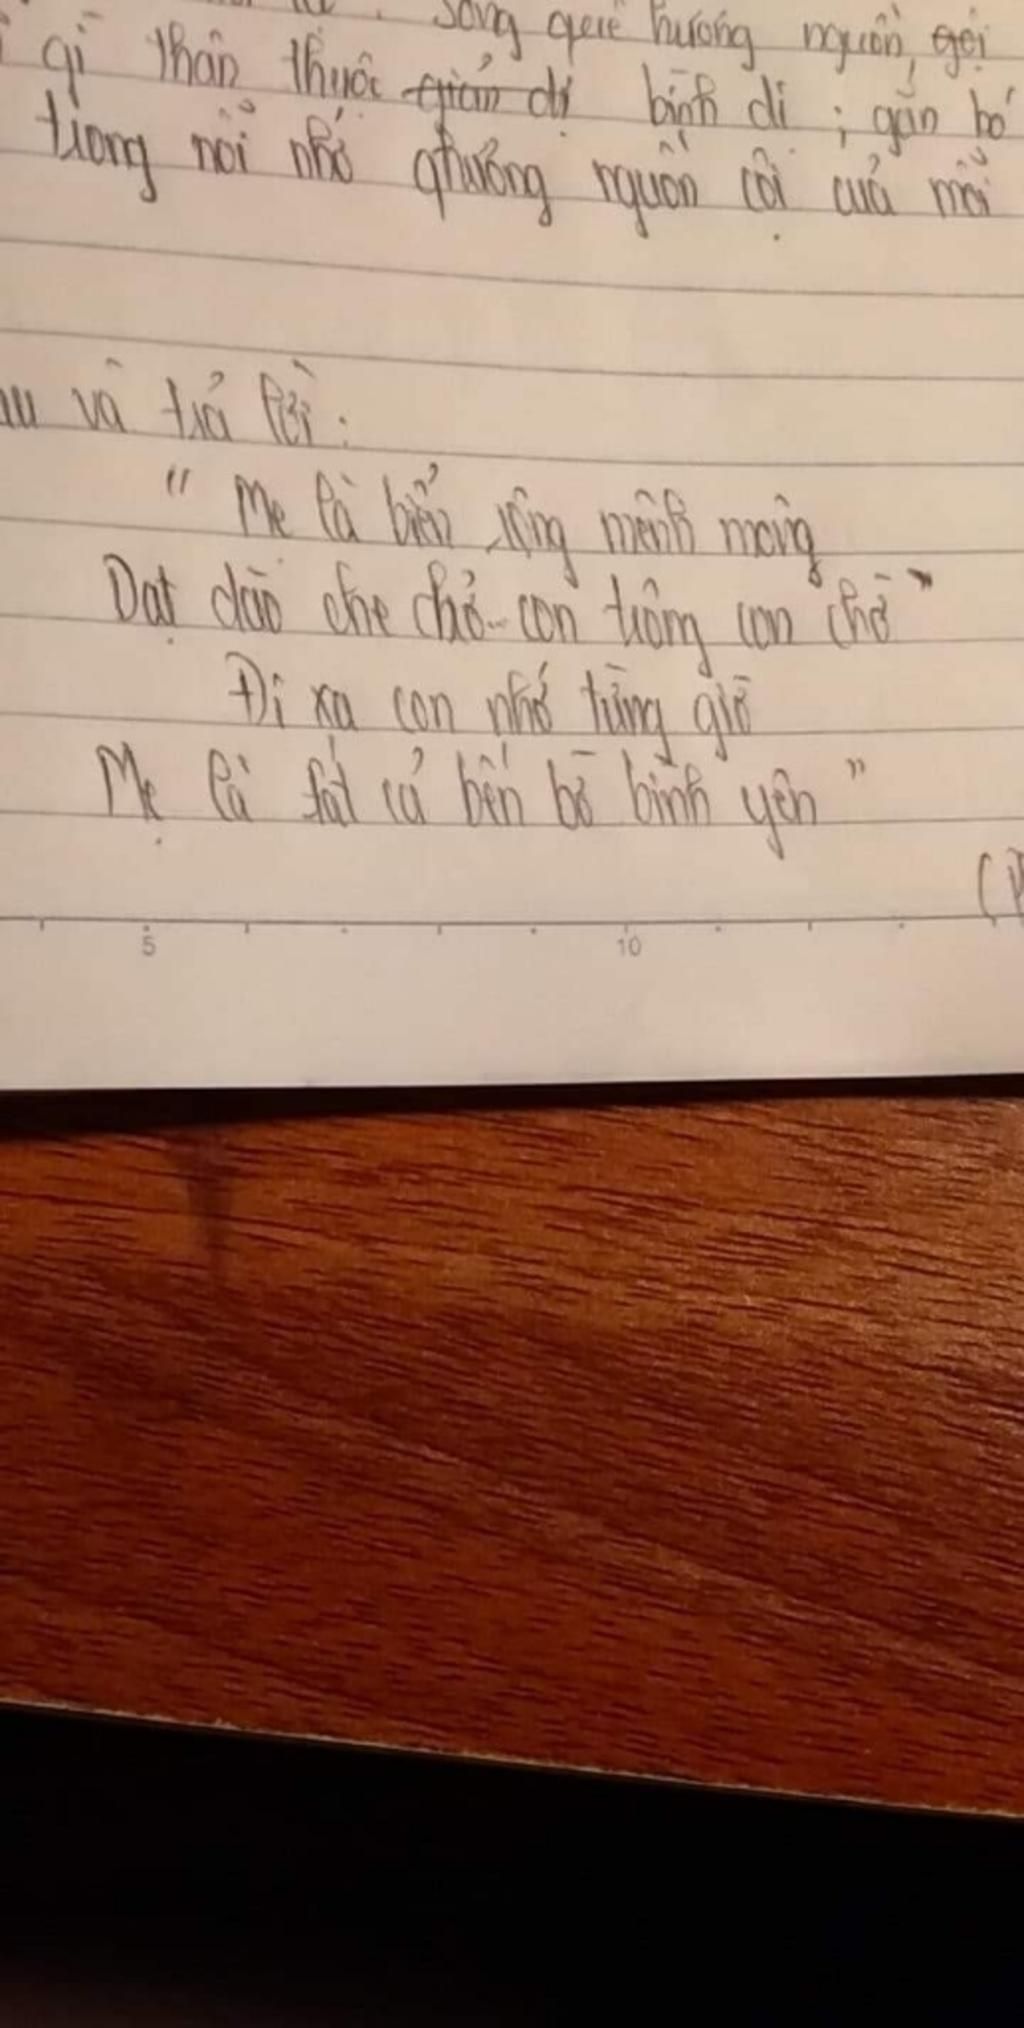 sông quê hương nguồn, gợi
gì thân thuộc giản dị bình dị ; gắn bó
trong nỗi nhớ thương nguồn cội của mỗi
và trả lời :
" Mẹ là biển rộng mênh mông
Dạt dào che chở.. con trông con chờ "
Đi xa con nhớ từng giờ
Mẹ là tất cả bến bờ bình yên "
(
5 10